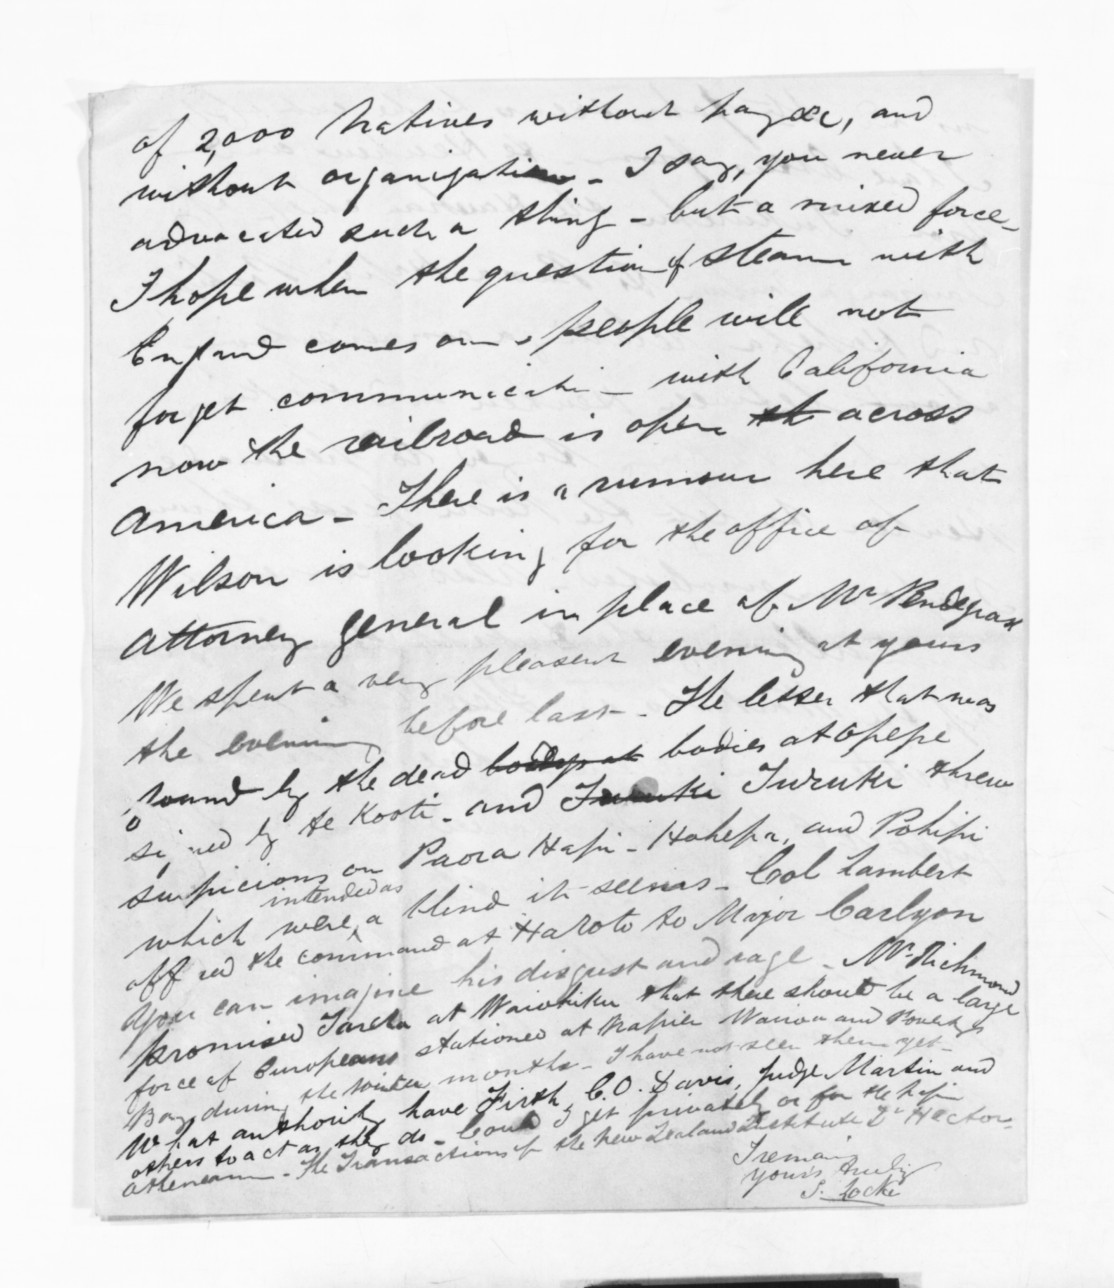 of 2,000 Natives without pay &c, and
without organization - I say, you never
advocated such a thing - but a mixed force -
I hope when the question of steam with
England comes on, people will not
forget communicati - with California
now the railroad is open th across
America - There is a rumour here that
Wilson is looking for the office of
Attorney general in place of Mr Pendegrast
We spent a very pleasent evening at yours
the evening before last - The letter that was
found by the dead bodys at bodies at Opepe
signed by Te Kooti - and Turuki Turuki threw
suspicions on Paora Hapi - Hohepa, and Pohipi
intended as
which were a blind it seems - Col Lambert
offred the command at Haroto to Major Carlyon
You can imagine his disgust and rage - Mr Richmond
promised Tareha at Waiohiku that there should be a large
force of Europeans stationed at Napier Wairoa and Poverty
Bay during the winter months - I have not seen them yet -
What authority have Firth, C.O. Davis, Judge Martin and
others to act as they do - Could I get privately or for the Napier
Atheneum - The Transactions of the New Zealand Institute Dr Hector -
I remain
yours truly
S. Locke